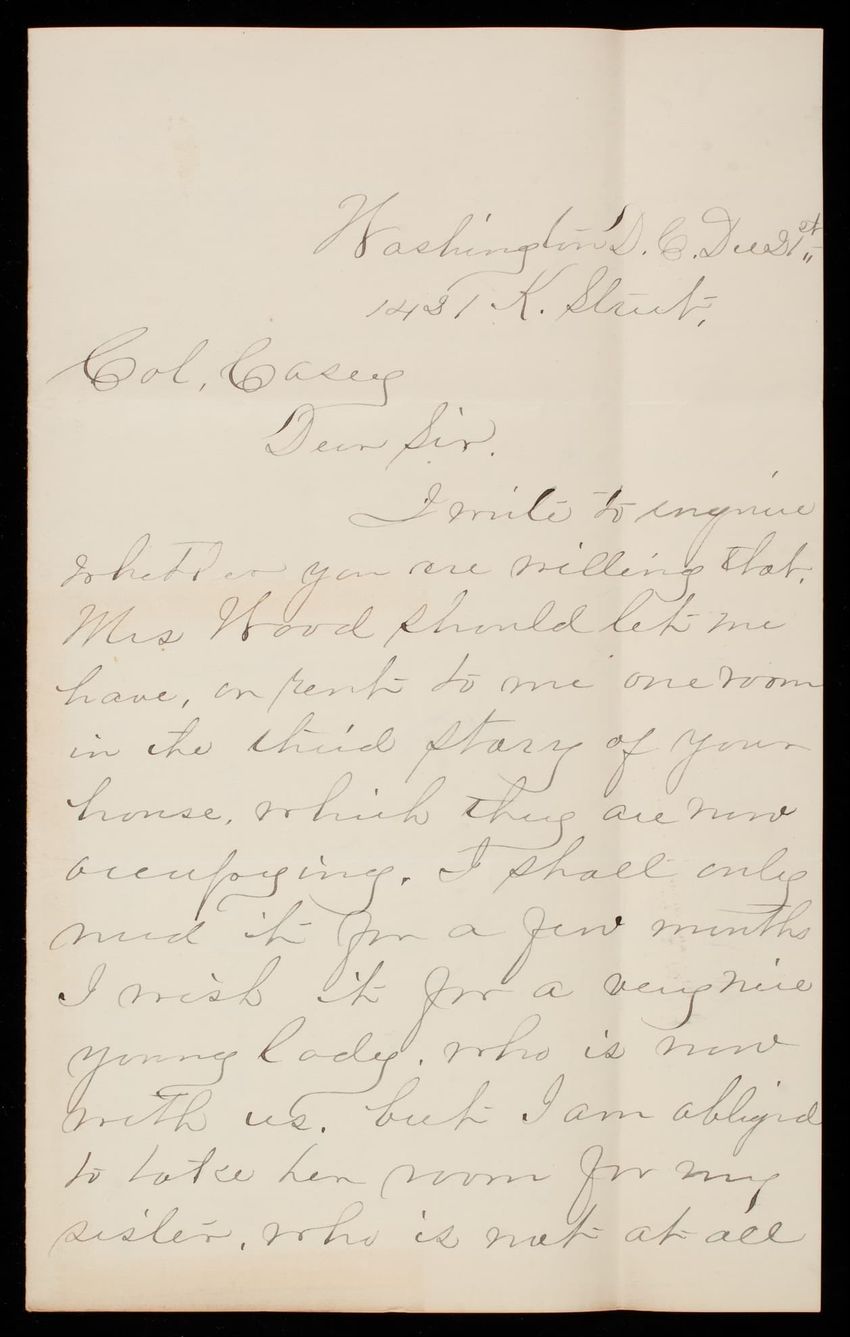 Washington D. C. Dec 21st
1421 K. Street,
Col, Casey
Dear Sir.
I write to inquire
whether you are willing that,
Mrs Wood should let me
have, or rent to me one room
in the third story of your
house, which they are now
occupying. I shall only
need it for a few months
I wish it for a very nice
young lady. who is now
with us. but I am obliged
to take her room for my
sister, who is not at all